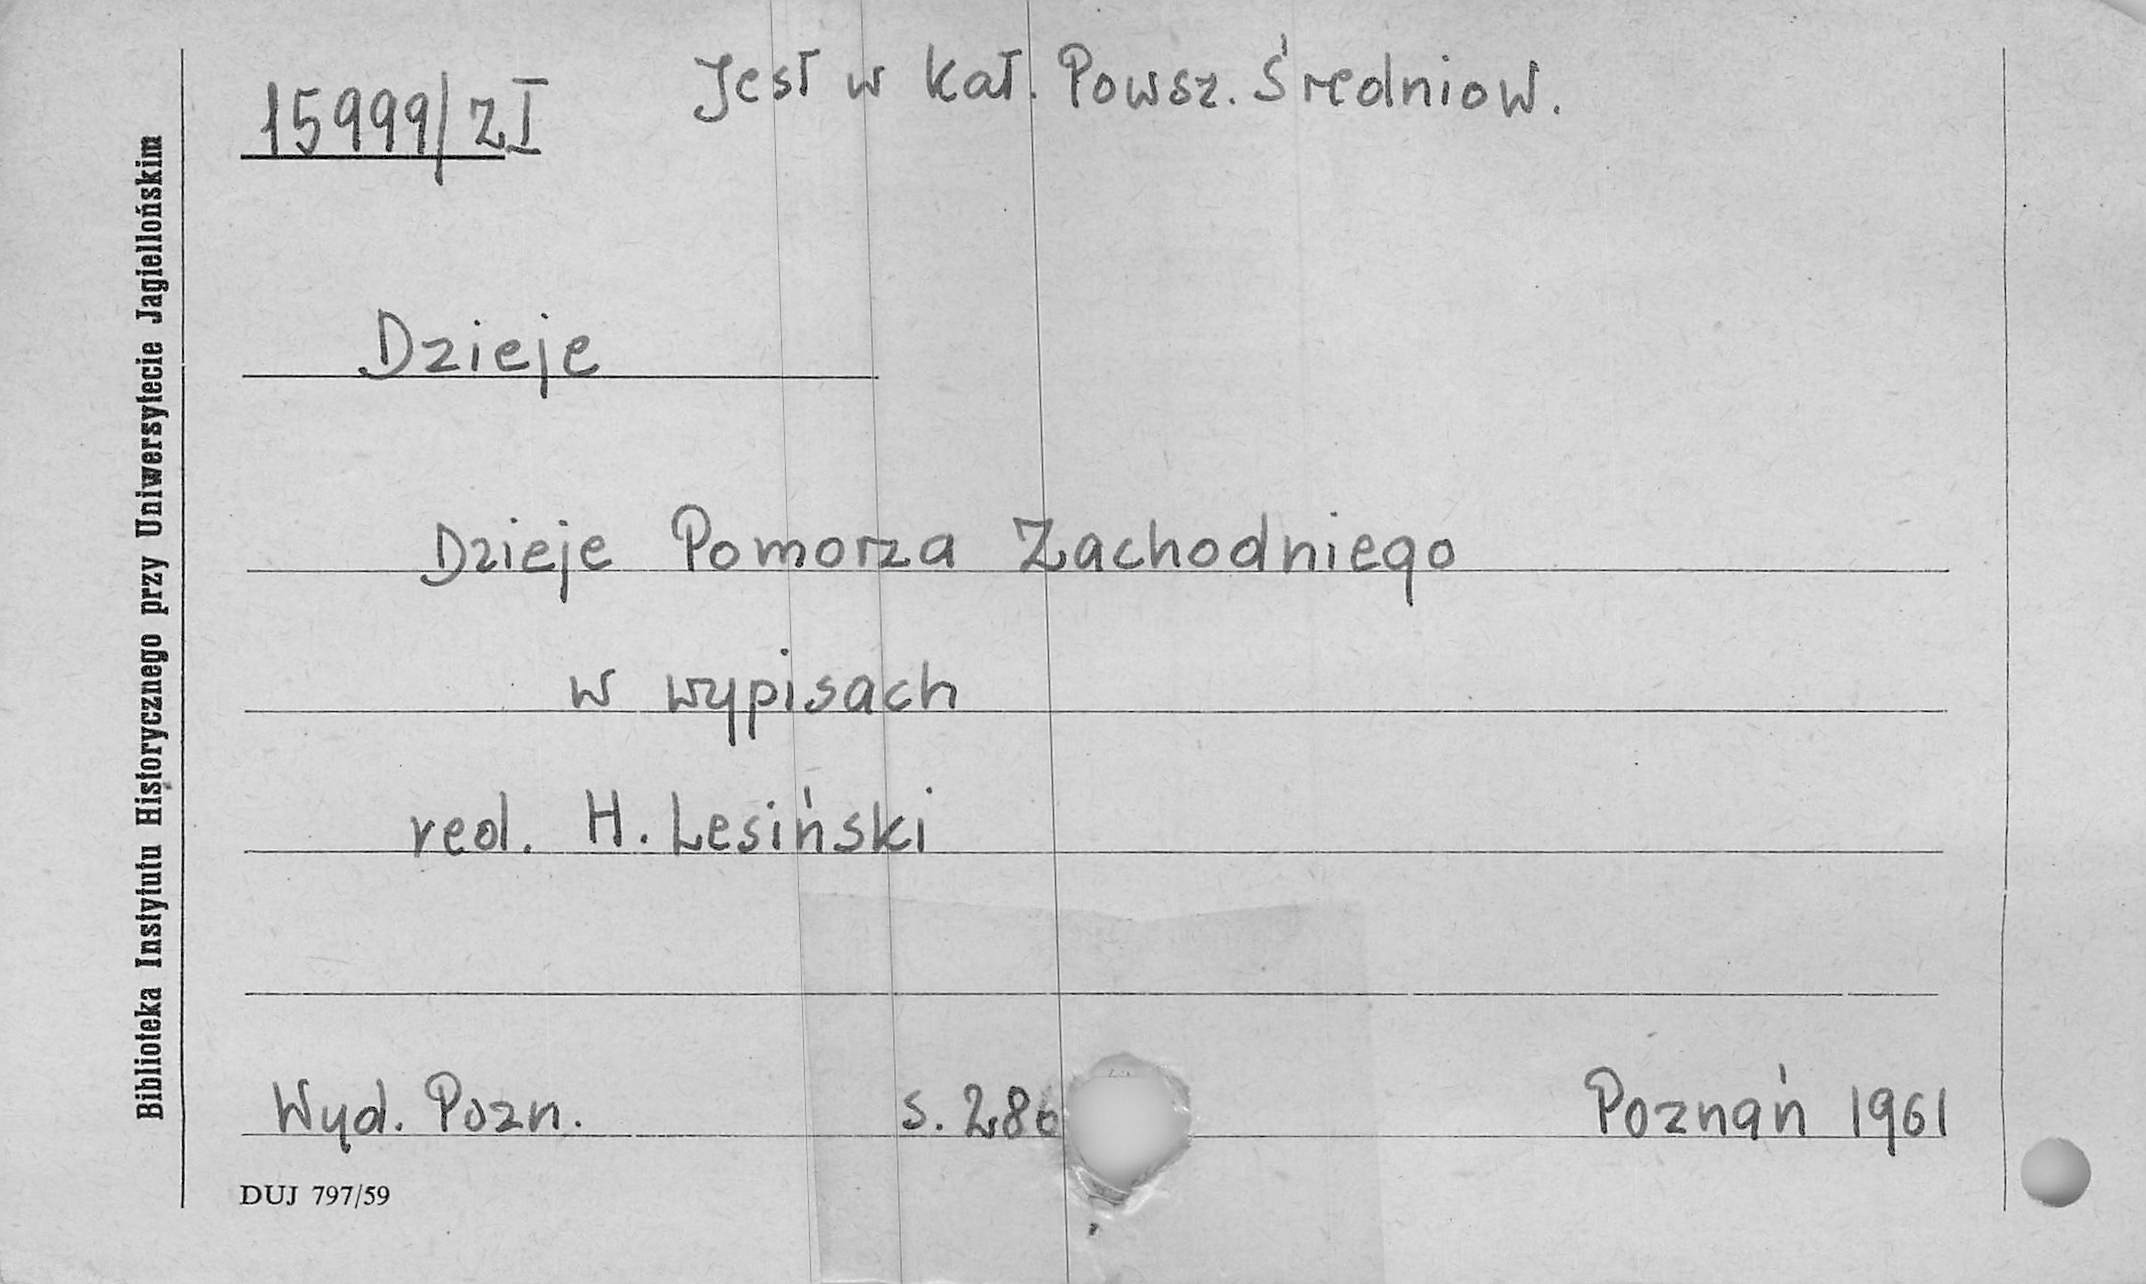 Jest w kat. Powsz. Średniow.
15999/z I
Dzieje
Dzieje Pomorza Zachodniego
w wypisach
red. H. Lesiński
Wyd. Pozn. s. 286 Poznań 1961
DUJ 797/59
Biblioteka Instytutu Historycznego przy Uniwersytecie Jagiellońskim